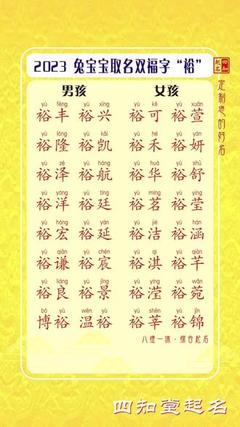 2023 兔宝宝取名双福字“裕”
定制您的好名
男孩 女孩
yù fēng yù xīng yù kě yù xuān
裕丰 裕兴 裕可 裕萱
yù lóng yù kǎi yù hé yù yán
裕隆 裕凯 裕禾 裕妍
yù zé yù háng yù huá yù shū
裕泽 裕航 裕华 裕舒
yù yáng yù tíng yù míng yù yíng
裕洋 裕廷 裕茗 裕莹
yù hóng yù yán yù jié yù hán
裕宏 裕延 裕洁 裕涵
yù qiān yù chén yù qí yù qiān
裕谦 裕宸 裕淇 裕芊
yù liáng yù jǐng yù yíng yù wǎn
裕良 裕景 裕滢 裕菀
bó yù wēn yù yù shēn yù jǐn
博裕 温裕 裕莘 裕锦
八维一体·综合起名
四知堂起名